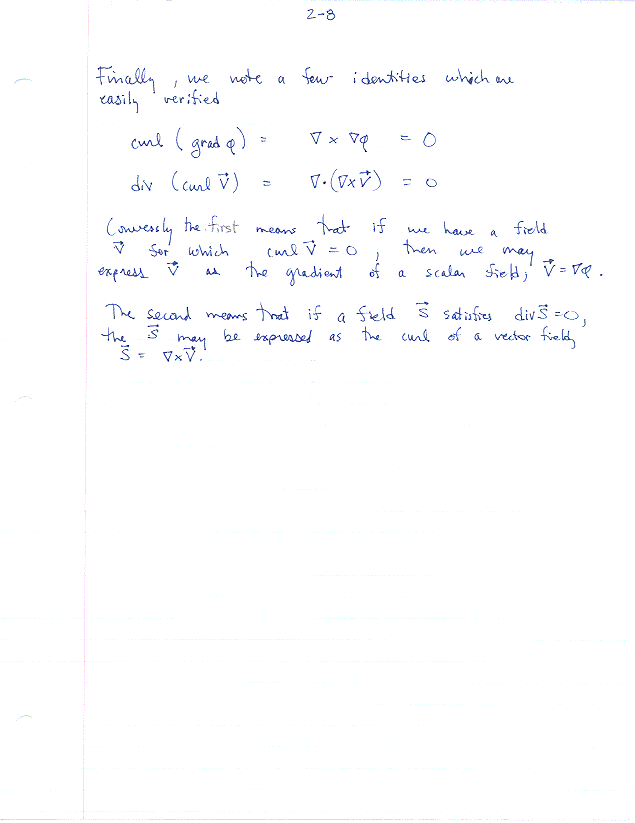 2-8
Finally, we note a few identities which are
easily verified
curl (grad φ) = ∇ × ∇φ = 0
div (curl V⃗) = ∇·(∇×V⃗) = 0
Conversely the first means that if we have a field
V⃗ for which curl V⃗ = 0, then we may
express V⃗ as the gradient of a scalar field, V⃗ = ∇φ.
The second means that if a field S⃗ satisfies div S⃗ = 0,
the S⃗ may be expressed as the curl of a vector field,
S⃗ = ∇×V⃗.